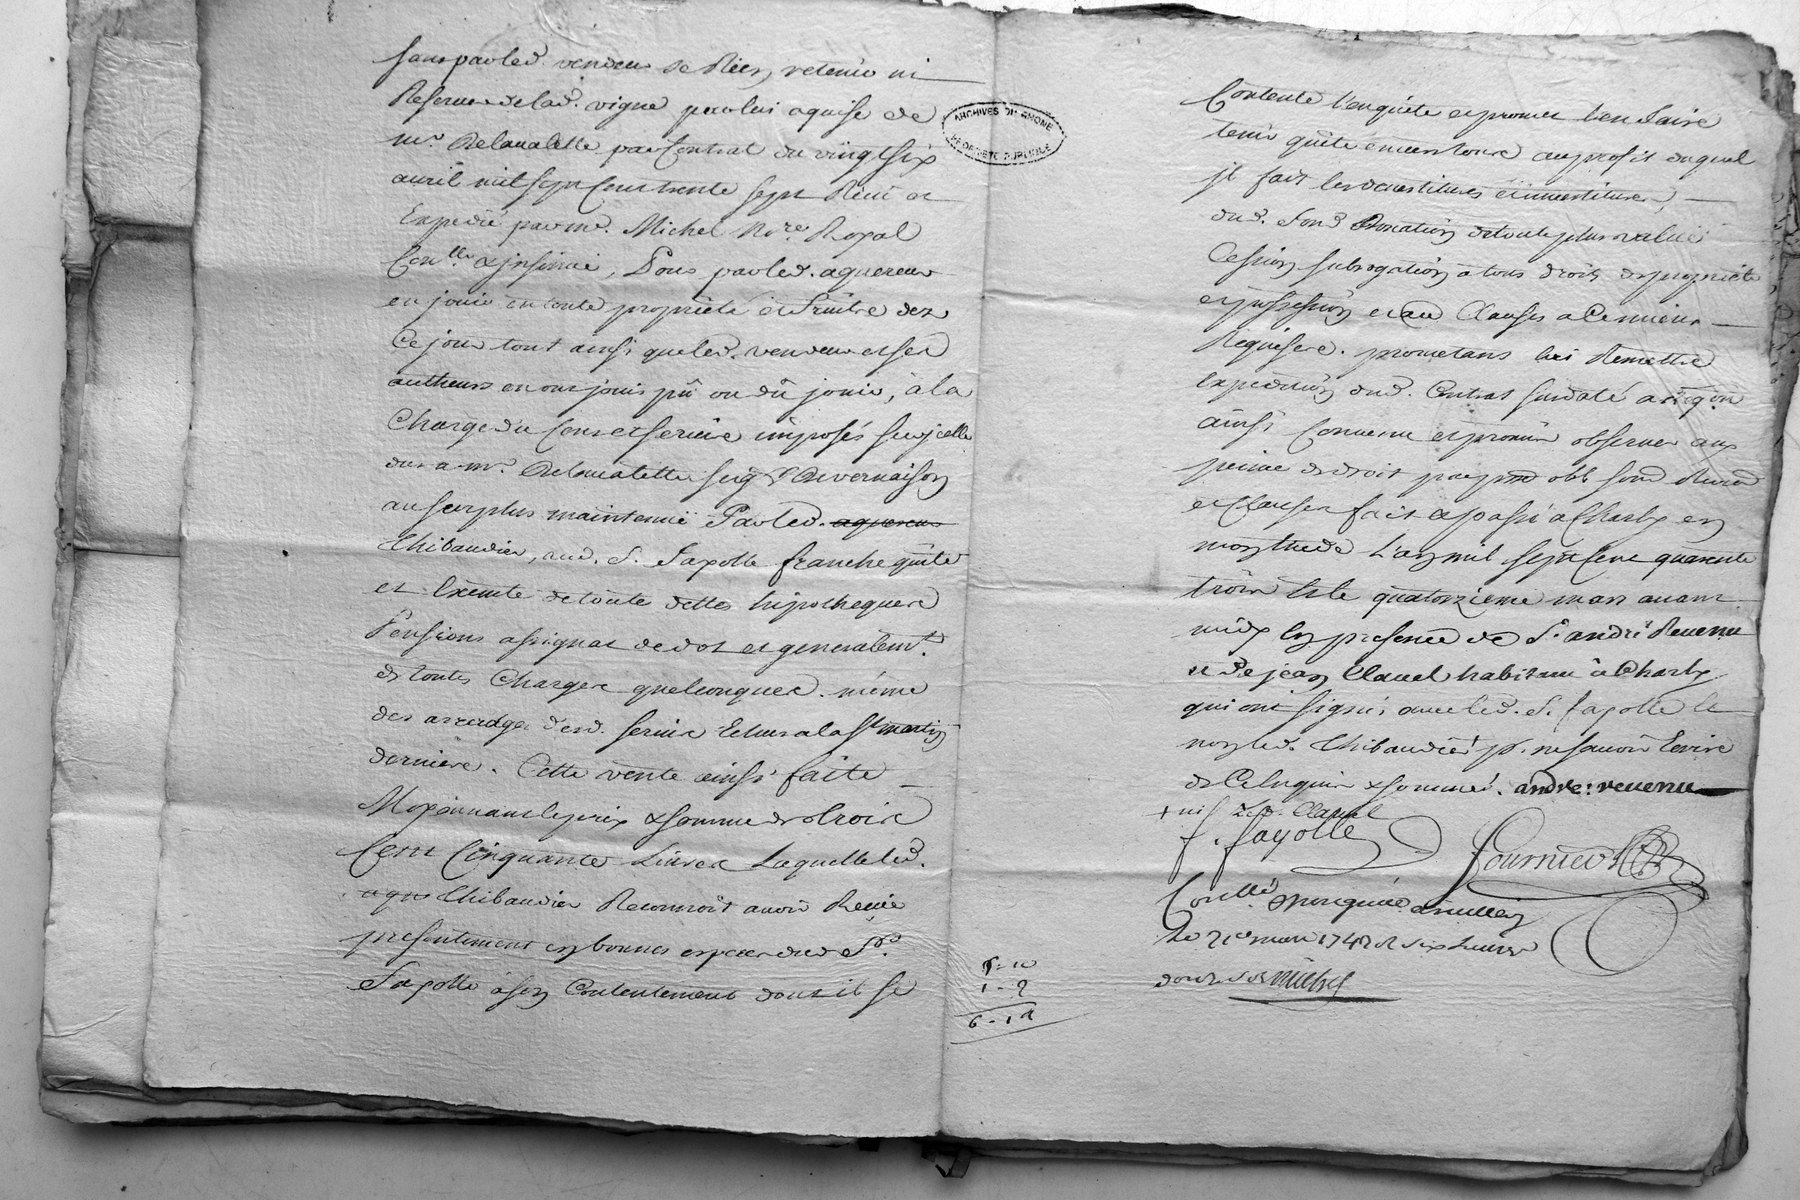 sans par led. vendeur se Rien retenir ni
Reserver de lad. vigne par lui aquise de
mr. Delavalette par Contrat du vingt six
avril mil sept Cent trente sept Recu et
Expedié par me. Michel No.re Royal
Con.lle & insinué, Pour par led. aquereur
en jouir en toute proprieté et fruitre dez
Ce jour tout ainsi que led. vendeur et ses
autheurs en ont joui pû ou dû jouir, à la
Charge du Cens et servis imposés sur jcelle
dus a mr. Delavalette seigr de vernaison
au surplus maintenüe Par led. aquereur
Thibaudier, aud. S. Fayolle franche quitte
et Exemte de toute dettes hipotheques
Pensions assignat de dot et generalemt.
de toutes Charges quelconques même
des arrerages desd. servis Echus a la st martin
derniere. Cette vente ainsi faite
Moyennant le prix & somme de trois
Cent Cinquante Livres Laquelle led.
aque Thibaudier Reconnoit avoir Reçüe
presentement en bonnes especes dud. Sr.
Fayolle à son Contentement dont il se
ARCHIVES DU RHONE
PROPRIETE PUBLIQUE
5-10
1-2
Contente l'en quitte et promet l'en faire
tenir quitte envers tous au profit duquel
jl fait les devestitures et investitures,
dud. fond Donation de toute plus value
Cession subrogation a tous droits de proprieté
et possession et au Clauses a Ce mieux
Requises. prometans lui Remettre
Expedition dud. Contrat susdaté
ainsi Convenu et promis observer aux
peine de droit par pnd obb soud Renod
et Clauses fait & passé a Charly en
mon Etude L'an mil sept Cent quarante
trois Et le quatorzieme mars avant
midy En presence de Sr andré Revenu
et de jean Clavel habitans à Charly
qui ont signé, avec led. S. fayolle et
non led. Thibaudier pr. ne savoir Ecrire
de Ce Enquis & sommé. andre: revenu
Clavel
f. fayolle
fournier
Con.llé & insinué a millery
Le 21e mars 1743 R six Livres
Michel